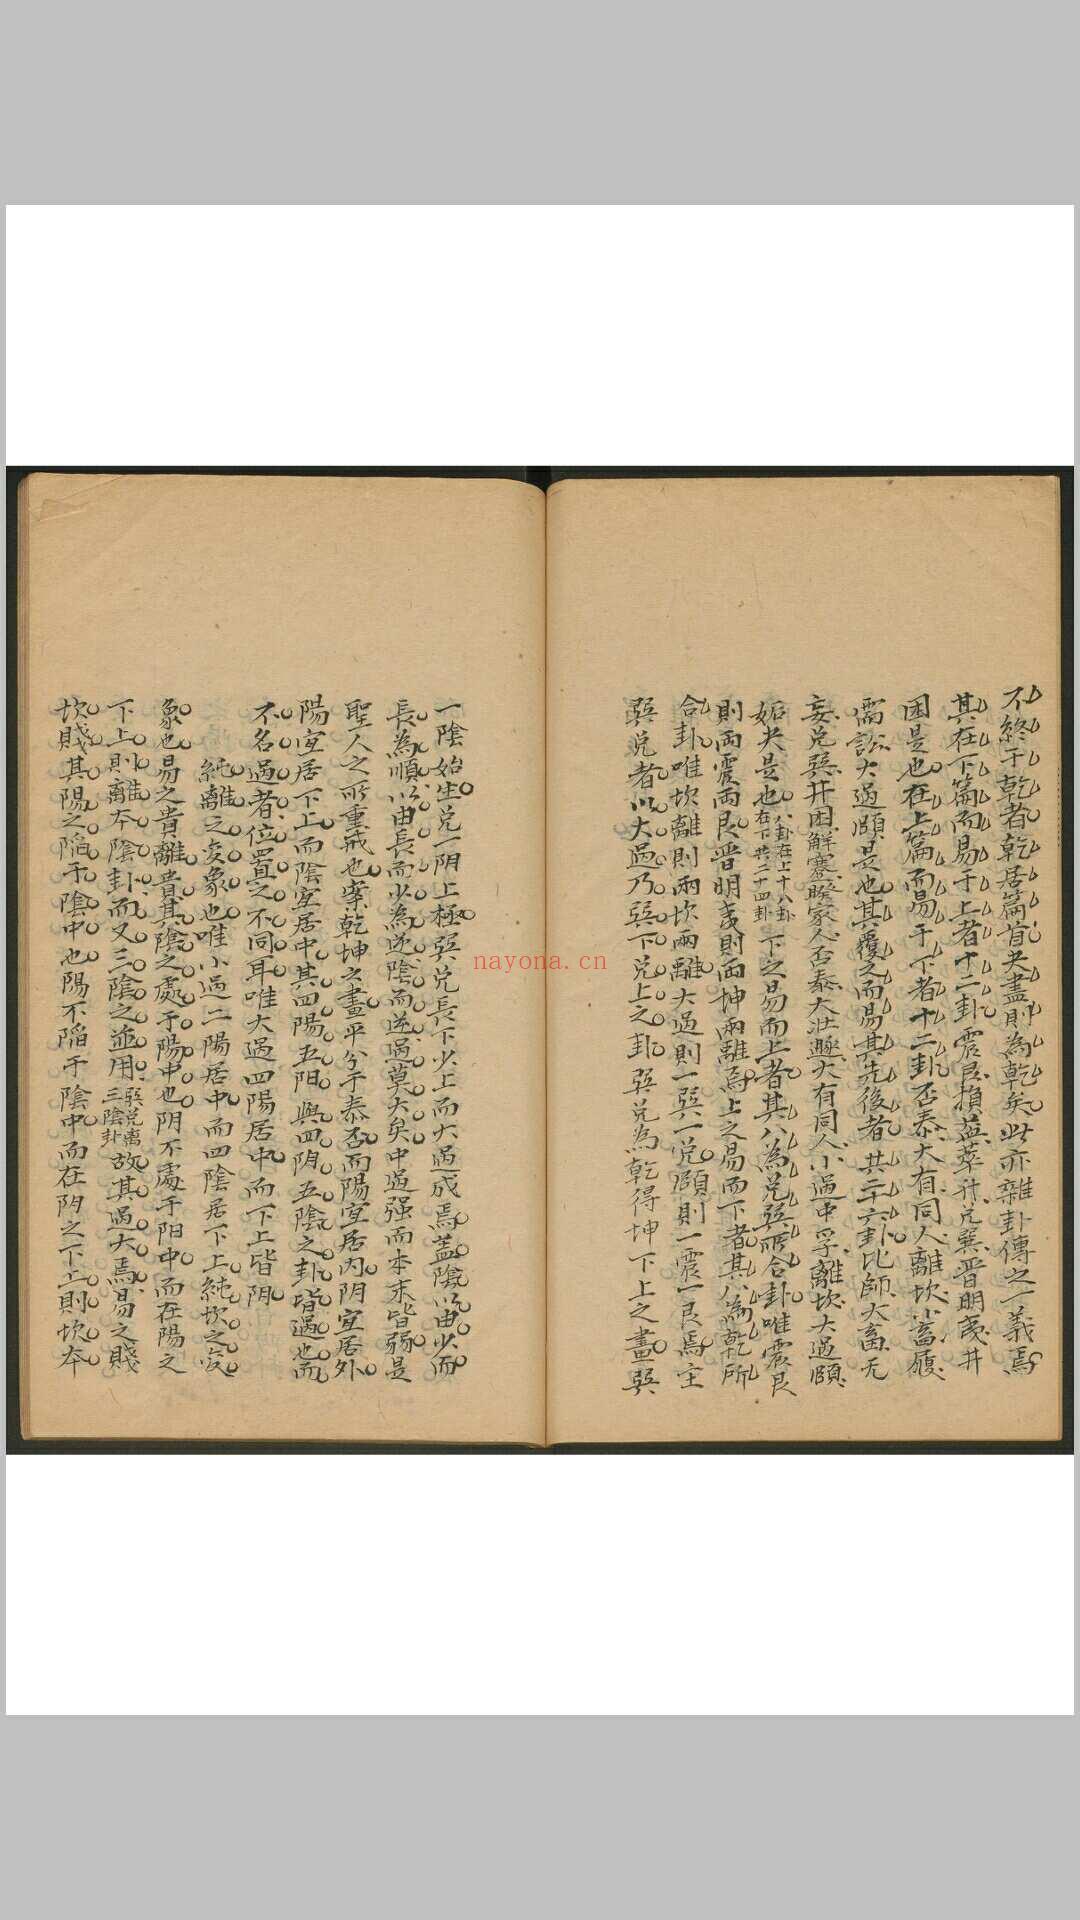 不終于乾者乾居篇首夬盡則為乾矣此亦雜卦傳之一義焉
其在下篇而易于上者十二卦震艮損益萃升兌巽晋明夷井
困是也在上篇而易于下者十二卦否泰大有同人離坎小畜履
需訟大過頤是也其覆之而易其先後者共二十六卦比師大畜无
妄兌巽井困解蹇睽家人否泰大壯遯大有同人小過中孚離坎大過頤
姤夬是也八卦在上十八卦在下共二十四卦下之易而上者其八為兌巽所合卦唯震艮
則兩震兩艮晋明夷則兩坤兩離焉上之易而下者其八為乾所
合卦唯坎離則兩坎兩離大過則一巽一兌頤則一震一艮焉主
巽兌者以大過乃巽下兌上之卦巽兌為乾得坤下上之畫巽
一陰始生兌一阴上極巽兌長下少上而大過成焉蓋陰以由少而
長為順以由長而少為逆陰而逆過莫大矣中過强而本末皆弱是
聖人之所重戒也案乾坤之畫平分于泰否而陽宜居内阴宜居外
陽宜居下上而陰宜居中其四陽五阳與四阴五陰之卦皆過也而
不名過者位置之不同耳唯大過四陽居中而下上皆阴
純離之变象也唯小過二陽居中而四陰居下上純坎之变
象也易之貴離貴其陰之處于陽中也阴不處于阳中而在陽之
下上則離本陰卦而又三陰之並用巽兌离三陰卦故其過大焉易之賤
坎賤其陽之陷于陰中也陽不陷于陰中而在阴之下上則坎本
nayona.cn